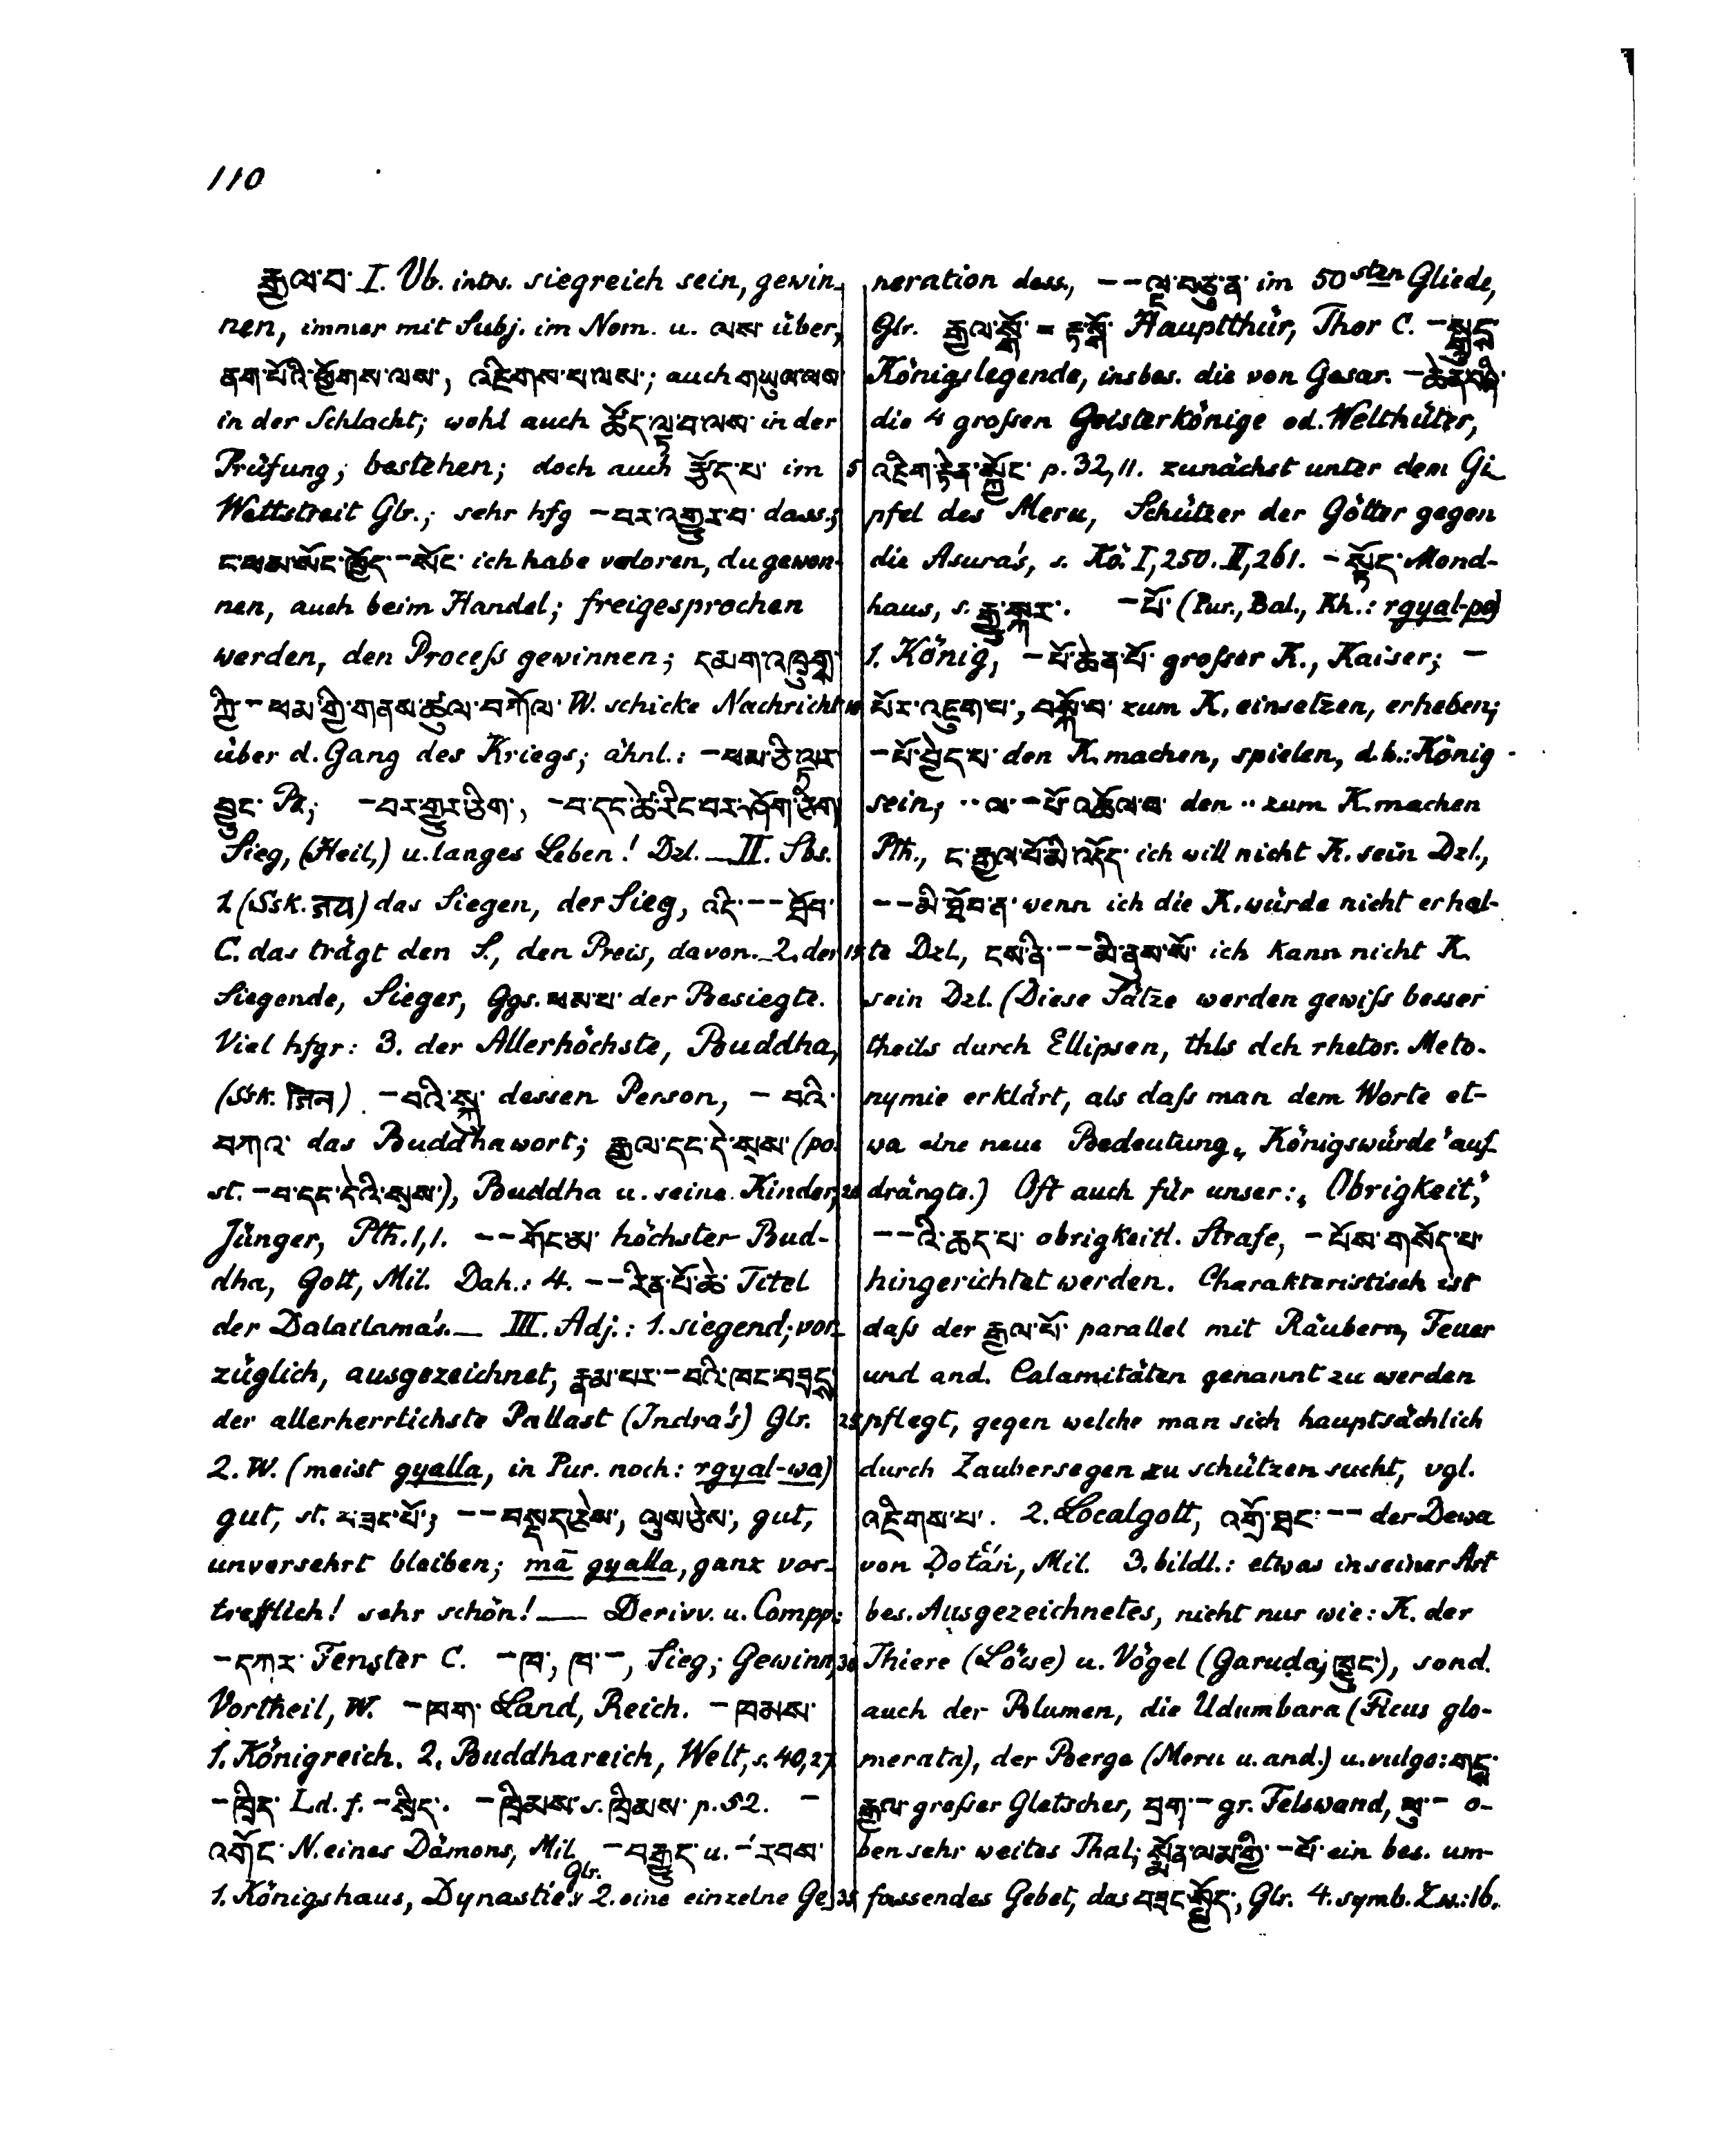 110
རྒྱལ་བ་ I. Vb. intr. siegreich sein, gewin-
nen, immer mit Subj. im Nom. u. ལས་ über,
ནག་པོའི་ཕྱོགས་ལས་, འཇིགས་པ་ལས་; auch གཡུལ་ལས་
in der Schlacht; wohl auch ཚོད་ལྟ་བ་ལས་ in der
Prüfung, bestehen; doch auch རྩོད་པ་ im
Wettstreit Glr.; sehr hfg –བར་འགྱུར་བ་ dass.;
ང་ཕམ་སོང་ཁྱོད་–སོང་ ich habe veloren, du gewon-
nen, auch beim Handel; freigesprochen
werden, den Proceſs gewinnen; དམག་འཁྲུག་
གི་–ཕམ་གྱི་གནས་ཚུལ་བཀོལ་ W. schicke Nachricht
über d. Gang des Kriegs; ähnl.: –ཕམ་ཅི་ལྟར་
བྱུང་ Pz; –བར་གྱུར་ཅིག་, –བ་དང་ཚེ་རིང་བར་ཤོག་ཅིག་
Sieg, (Heil,) u. langes Leben! Dzl. — II. Sbs.
1. (Ssk. जय) das Siegen, der Sieg, འདི་––ཐོབ་
C. das trägt den S., den Preis, davon. _ 2. der
Siegende, Sieger, Ggs. ཕམ་པ་ der Besiegte.
Viel hfgr: 3. der Allerhöchste, Buddha,
(Ssk. जिन) –བའི་སྐུ་ dessen Person, –བའི་
བཀའ་ das Buddhawort; རྒྱལ་དང་དེ་སྲས་ (po.
st. –བ་དང་དེའི་སྲས་), Buddha u. seine Kinder,
Jünger, Pth. 1,1. ––གོང་མ་ höchster Bud-
dha, Gott, Mil. Dah.: 4. ––རིན་པོ་ཆེ་ Titel
der Dalailama's. — III. Adj.: 1. siegend; vor-
züglich, ausgezeichnet, རྣམ་པར་–བའི་ཁང་བཟང་
der allerherrlichste Pallast (Indra's) Glr.
2. W. (meist gyalla, in Pur. noch: rgyal-wa)
gut, st. བཟང་པོ་; ––བསྡད་ཅེས་, ལུས་ཅེས་, gut,
unversehrt bleiben; mā gyalla, ganz vor-
trefflich! sehr schön! — Derivv. u. Compp.:
–དཀར་ Fenster C. –ཁ་, ཁ་–, Sieg; Gewinn,
Vortheil, W. –ཁག་ Land, Reich. –ཁམས་
1. Königreich. 2. Buddhareich, Welt, s. 40,27.
–ཁྲིད་ Ld. f. –སྲིད་. –ཁྲིམས་ s. ཁྲིམས་ p. 52. –
འགོང་ N. eines Dämons, Mil. –བརྒྱུད་ u. –རབས་
1. Königshaus, Dynastie Glr. 2. eine einzelne Ge-
5
10
15
20
25
30
35
neration dess., ––ལྔ་བཅུ་ན་ im 50sten Gliede,
Glr. རྒྱལ་སྒོ་ = རྟ་སྒོ་ Hauptthür, Thor C. –སྒྲུང་
Königslegende, insbes. die von Gesar. –ཆེན་བཞི་
die 4 groſsen Geisterkönige od. Welthüter,
འཇིག་རྟེན་སྐྱོང་ p. 32,11. zunächst unter dem Gi-
pfel des Meru, Schützer der Götter gegen
die Asura's, s. Kö. I, 250. II, 261. –སྟོད་ Mond-
haus, s. རྒྱུ་སྐར་. –པོ་ (Pur., Bal., Kh.: rgyal-po)
1. König, –པོ་ཆེན་པོ་ groſser K., Kaiser; –
པོར་འཇུག་པ་, བསྐོ་བ་ zum K. einsetzen, erheben;
–པོ་བྱེད་པ་ den K. machen, spielen, d.h.: König
sein; ··ལ་–པོ་འཆོལ་བ་ den ·· zum K. machen
Pth., ང་རྒྱལ་པོ་མི་འདོད་ ich will nicht K. sein Dzl.,
––མི་ཐོབ་ན་ wenn ich die K.würde nicht erhal-
te Dzl., ངས་ནི་––མི་ནུས་སོ་ ich kann nicht K.
sein Dzl. (Diese Sätze werden gewiſs besser
theils durch Ellipsen, thls dch rhetor. Meto-
nymie erklärt, als daſs man dem Worte et-
wa eine neue Bedeutung „Königswürde" auf-
drängte.) Oft auch für unser: „Obrigkeit,"
––འི་ཆད་པ་ obrigkeitl. Strafe, –པོས་གསོད་པ་
hingerichtet werden. Charakteristisch ist
daſs der རྒྱལ་པོ་ parallel mit Räubern, Feuer
und and. Calamitäten genannt zu werden
pflegt, gegen welche man sich hauptsächlich
durch Zaubersegen zu schützen sucht, vgl.
འཇིགས་པ་. 2. Localgott, འགྲོ་ཐང་–– der Dewa
von Ḍotʽáṅ, Mil. 3. bildl.: etwas in seiner Art
bes. Ausgezeichnetes, nicht nur wie: K. der
Thiere (Löwe) u. Vögel (Garuḍa; ཁྱུང་), sond.
auch der Blumen, die Udumbara (Ficus glo-
merata), der Berge (Meru u. and.) u. vulgo: གངས་
རྒྱལ་ groſser Gletscher, བྲག་– gr. Felswand, ཕུ་– o-
ben sehr weites Thal; སྨོན་ལམ་གྱི་–པོ་ ein bes. um-
fassendes Gebet, das བཟང་སྤྱོད་, Glr. 4. symb. Zw.: 16.